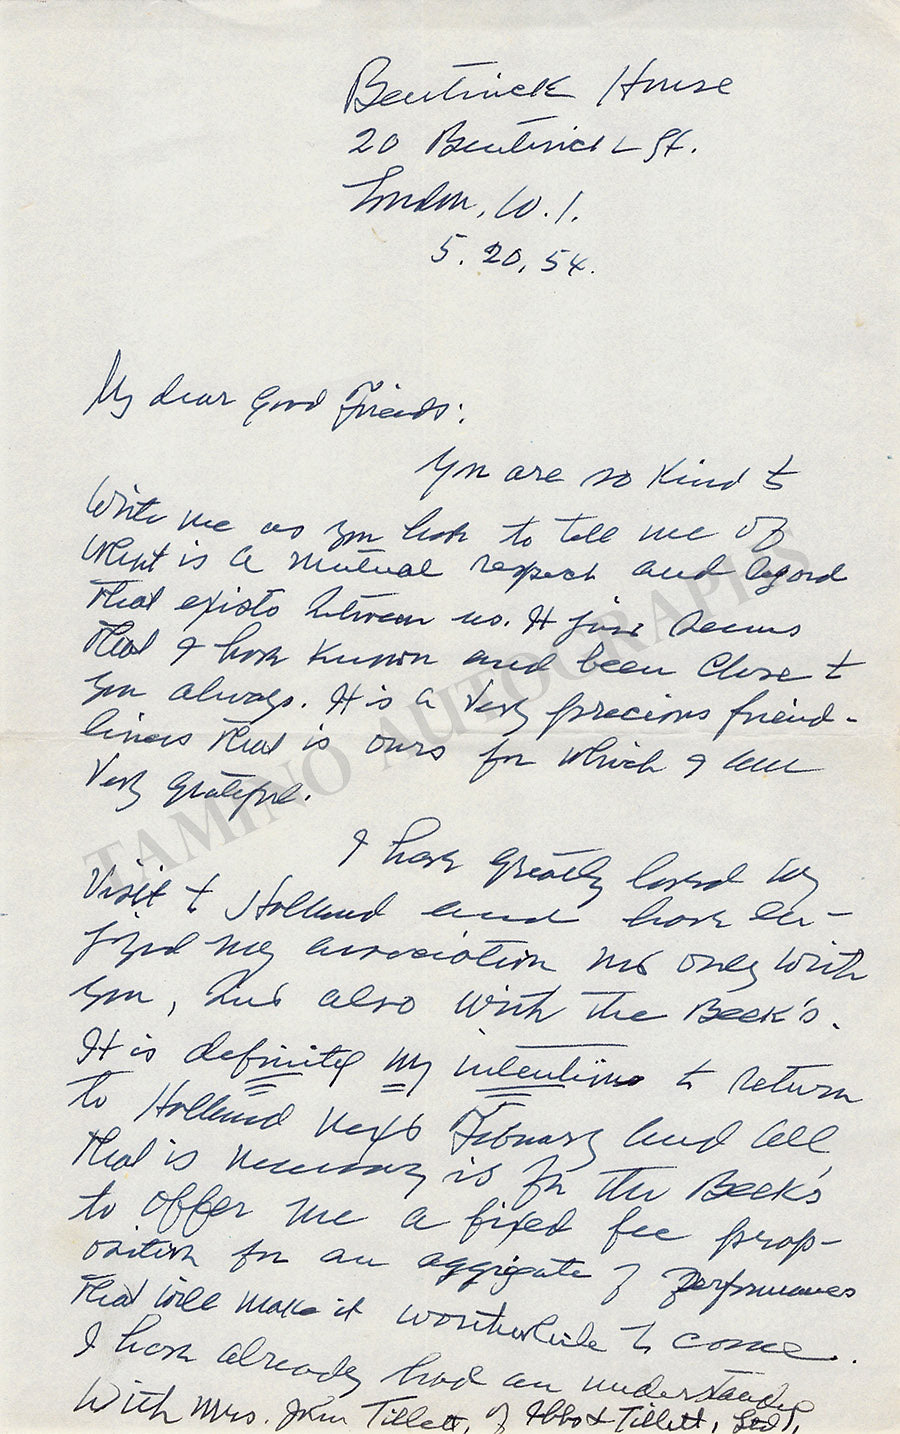 Bentinck House
20 Bentinck St.
London, W.1.
5.20,54.
My dear Good Friends:
You are so kind to
write me as you have to tell me of
what is a mutual respect and regard
that exists between us. It just seems
that I have known and been close to
you always. It is a very precious friend-
liness that is ours for which I am
very grateful.
I have greatly loved my
visit to Holland and have en-
joyed my association not only with
you, but also with the Beek's.
It is definitely my intention to return
to Holland next February and all
that is necessary is for the Beek's
to offer me a fixed fee prop-
osition for an aggregate of performances
that will make it worthwhile to come.
I have already had an understanding
with Mrs. John Tillett, of Ibbs & Tillett, Ltd.,
TAMINO AUTOGRAPHS